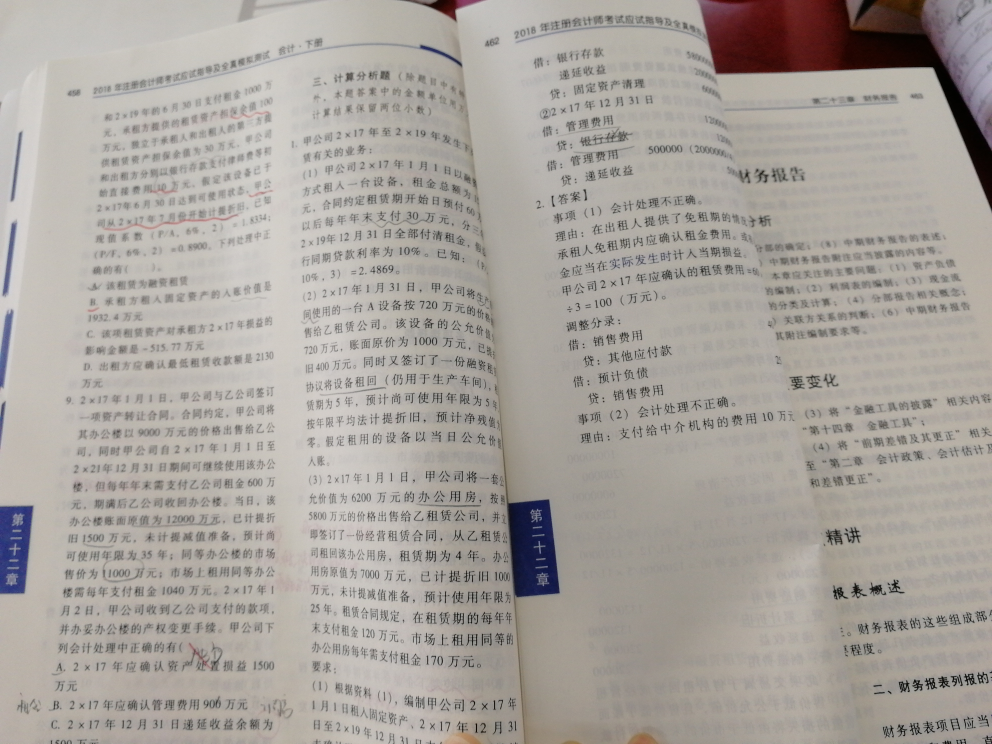 458 2018年注册会计师考试应试指导及全真模拟测试 会计·下册
和2×19年的6月30日支付租金1000万
元，承租方提供的租赁资产担保余值100
万元，独立于承租人和出租人的第三方提
供租赁资产担保余值为30万元，甲公司
和出租方分别以银行存款支付律师费等初
始直接费用10万元，假定该设备已于
2×17年6月30日达到可使用状态，甲公
司从2×17年7月份开始计提折旧，已知
现值系数（P/A，6%，2）=1.8334；
（P/F，6%，2）=0.8900，下列处理中正
确的有（ ）。
A. 该租赁为融资租赁
B. 承租方租入固定资产的入账价值是
1932.4万元
C. 该项租赁资产对承租方2×17年损益的
影响金额是-515.77万元
D. 出租方应确认最低租赁收款额是2130
万元
9. 2×17年1月1日，甲公司与乙公司签订
一项资产转让合同。合同约定，甲公司将
其办公楼以9000万元的价格出售给乙公
司，同时甲公司自2×17年1月1日至
2×21年12月31日期间可继续使用该办公
楼，但每年年末需支付乙公司租金600万
元，期满后乙公司收回办公楼。当日，该
办公楼账面原值为12000万元，已计提折
旧1500万元，未计提减值准备，预计尚
可使用年限为35年；同等办公楼的市场
售价为11000万元；市场上租用同等办公
楼需每年支付租金1040万元。2×17年1
月2日，甲公司收到乙公司支付的款项，
并办妥办公楼的产权变更手续。甲公司下
列会计处理中正确的有（
A. 2×17年应确认资产处置损益1500
万元
B. 2×17年应确认管理费用900万元
C. 2×17年12月31日递延收益余额为
1500万元
第二十二章
三、计算分析题（除题目中
外，本题答案中的金额单位用
计算结果保留两位小数）
1. 甲公司2×17年至2×19年发生
赁有关的业务：
（1）甲公司2×17年1月1日以融
方式租入一台设备，租金总额为
元，合同约定租赁期开始日预付60
以后每年年末支付30万元，分三
2×19年12月31日全部付清租金，假
行同期贷款利率为10%。已知：（P
10%，3）=2.4869。
（2）2×17年1月31日，甲公司将生产
间使用的一台A设备按720万元的价格
售给乙租赁公司。该设备的公允价值
720万元，账面原价为1000万元，已提
旧400万元。同时又签订了一份融资租
协议将设备租回（仍用于生产车间），
赁期为5年，预计尚可使用年限为5年
按年限平均法计提折旧，预计净残值
零。假定租用的设备以当日公允价值
入账。
（3）2×17年1月1日，甲公司将一套公
允价值为6200万元的办公用房，按照
5800万元的价格出售给乙租赁公司，并立
即签订了一份经营租赁合同，从乙租赁公
司租回该办公用房，租赁期为4年。办公
用房原值为7000万元，已计提折旧1000
万元，未计提减值准备，预计使用年限为
25年。租赁合同规定，在租赁期的每年年
末支付租金120万元。市场上租用同等的
办公用房每年需支付租金170万元。
要求：
（1）根据资料（1），编制甲公司2×17年
1月1日租入固定资产、2×17年12月31
日至2×19年12月31日
462 2018年注册会计师考试应试指导及全真模拟
借：银行存款 5800000
递延收益
贷：固定资产清理
②2×17年12月31日
借：管理费用 120000
贷：银行存款
借：管理费用 500000（2000000
贷：递延收益
2.【答案】
事项（1）会计处理不正确。
理由：在出租人提供了免租期的情
承租人免租期内应确认租金费用。或
金应当在实际发生时计入当期损益。
甲公司2×17年应确认的租赁费用=
÷3=100（万元）。
调整分录：
借：销售费用
贷：其他应付款
借：预计负债
贷：销售费用
事项（2）会计处理不正确。
理由：支付给中介机构的费用10万元
第二十二章
第二十三章 财务报告 463
财务报告
分析
分部的确定；（8）中期财务报告的表述；
）中期财务报告附注应当披露的内容等。
本章应关注的主要问题：（1）资产负债
的编制；（2）利润表的编制；（3）现金流
的分类及计算；（4）分部报告相关概念；
）关联方关系的判断；（6）中期财务报告
其附注编制要求等。
要变化
（3）将“金融工具的披露”相关内容
“第十四章 金融工具”；
（4）将“前期差错及其更正”相关
至“第二章 会计政策、会计估计及
和差错更正”。
精讲
报表概述
。财务报表的这些组成部分
要程度。
二、财务报表列报的基
财务报表项目应当